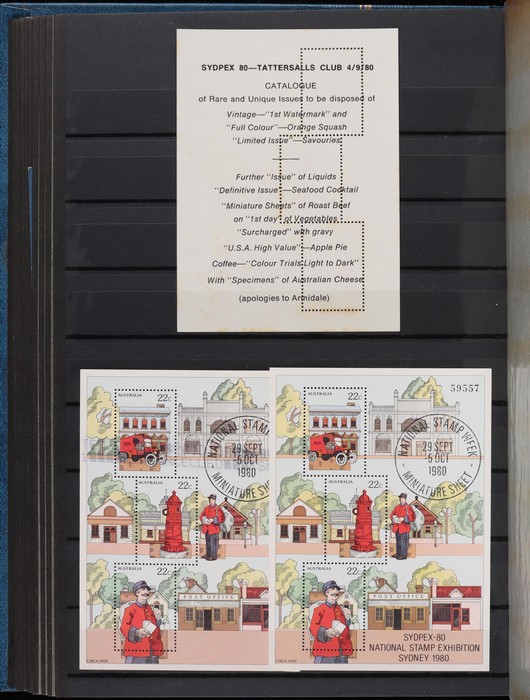 SYDPEX 80—TATTERSALLS CLUB 4/9/80
CATALOGUE
of Rare and Unique Issues to be disposed of
Vintage—"1st Watermark" and
"Full Colour"—Orange Squash
"Limited Issue"—Savouries
Further "Issue" of Liquids
"Definitive Issue"—Seafood Cocktail
"Miniature Sheets" of Roast Beef
on "1st day" of Vegetables
"Surcharged" with gravy
"U.S.A. High Value"—Apple Pie
Coffee—"Colour Trials Light to Dark"
With "Specimens" of Australian Cheese
(apologies to Armidale)
AUSTRALIA
22c
NATIONAL STAMP
29 SEPT
5 OCT
1980
MINIATURE SHE
22c
AUSTRALIA
22c
POST OFFICE
CIRCA 1900
59557
AUSTRALIA
22c
NATIONAL STAMP WEEK
29 SEPT
5 OCT
1980
MINIATURE SHEET
22c
22c
POST OFFICE
SYDPEX-80
NATIONAL STAMP EXHIBITION
SYDNEY 1980